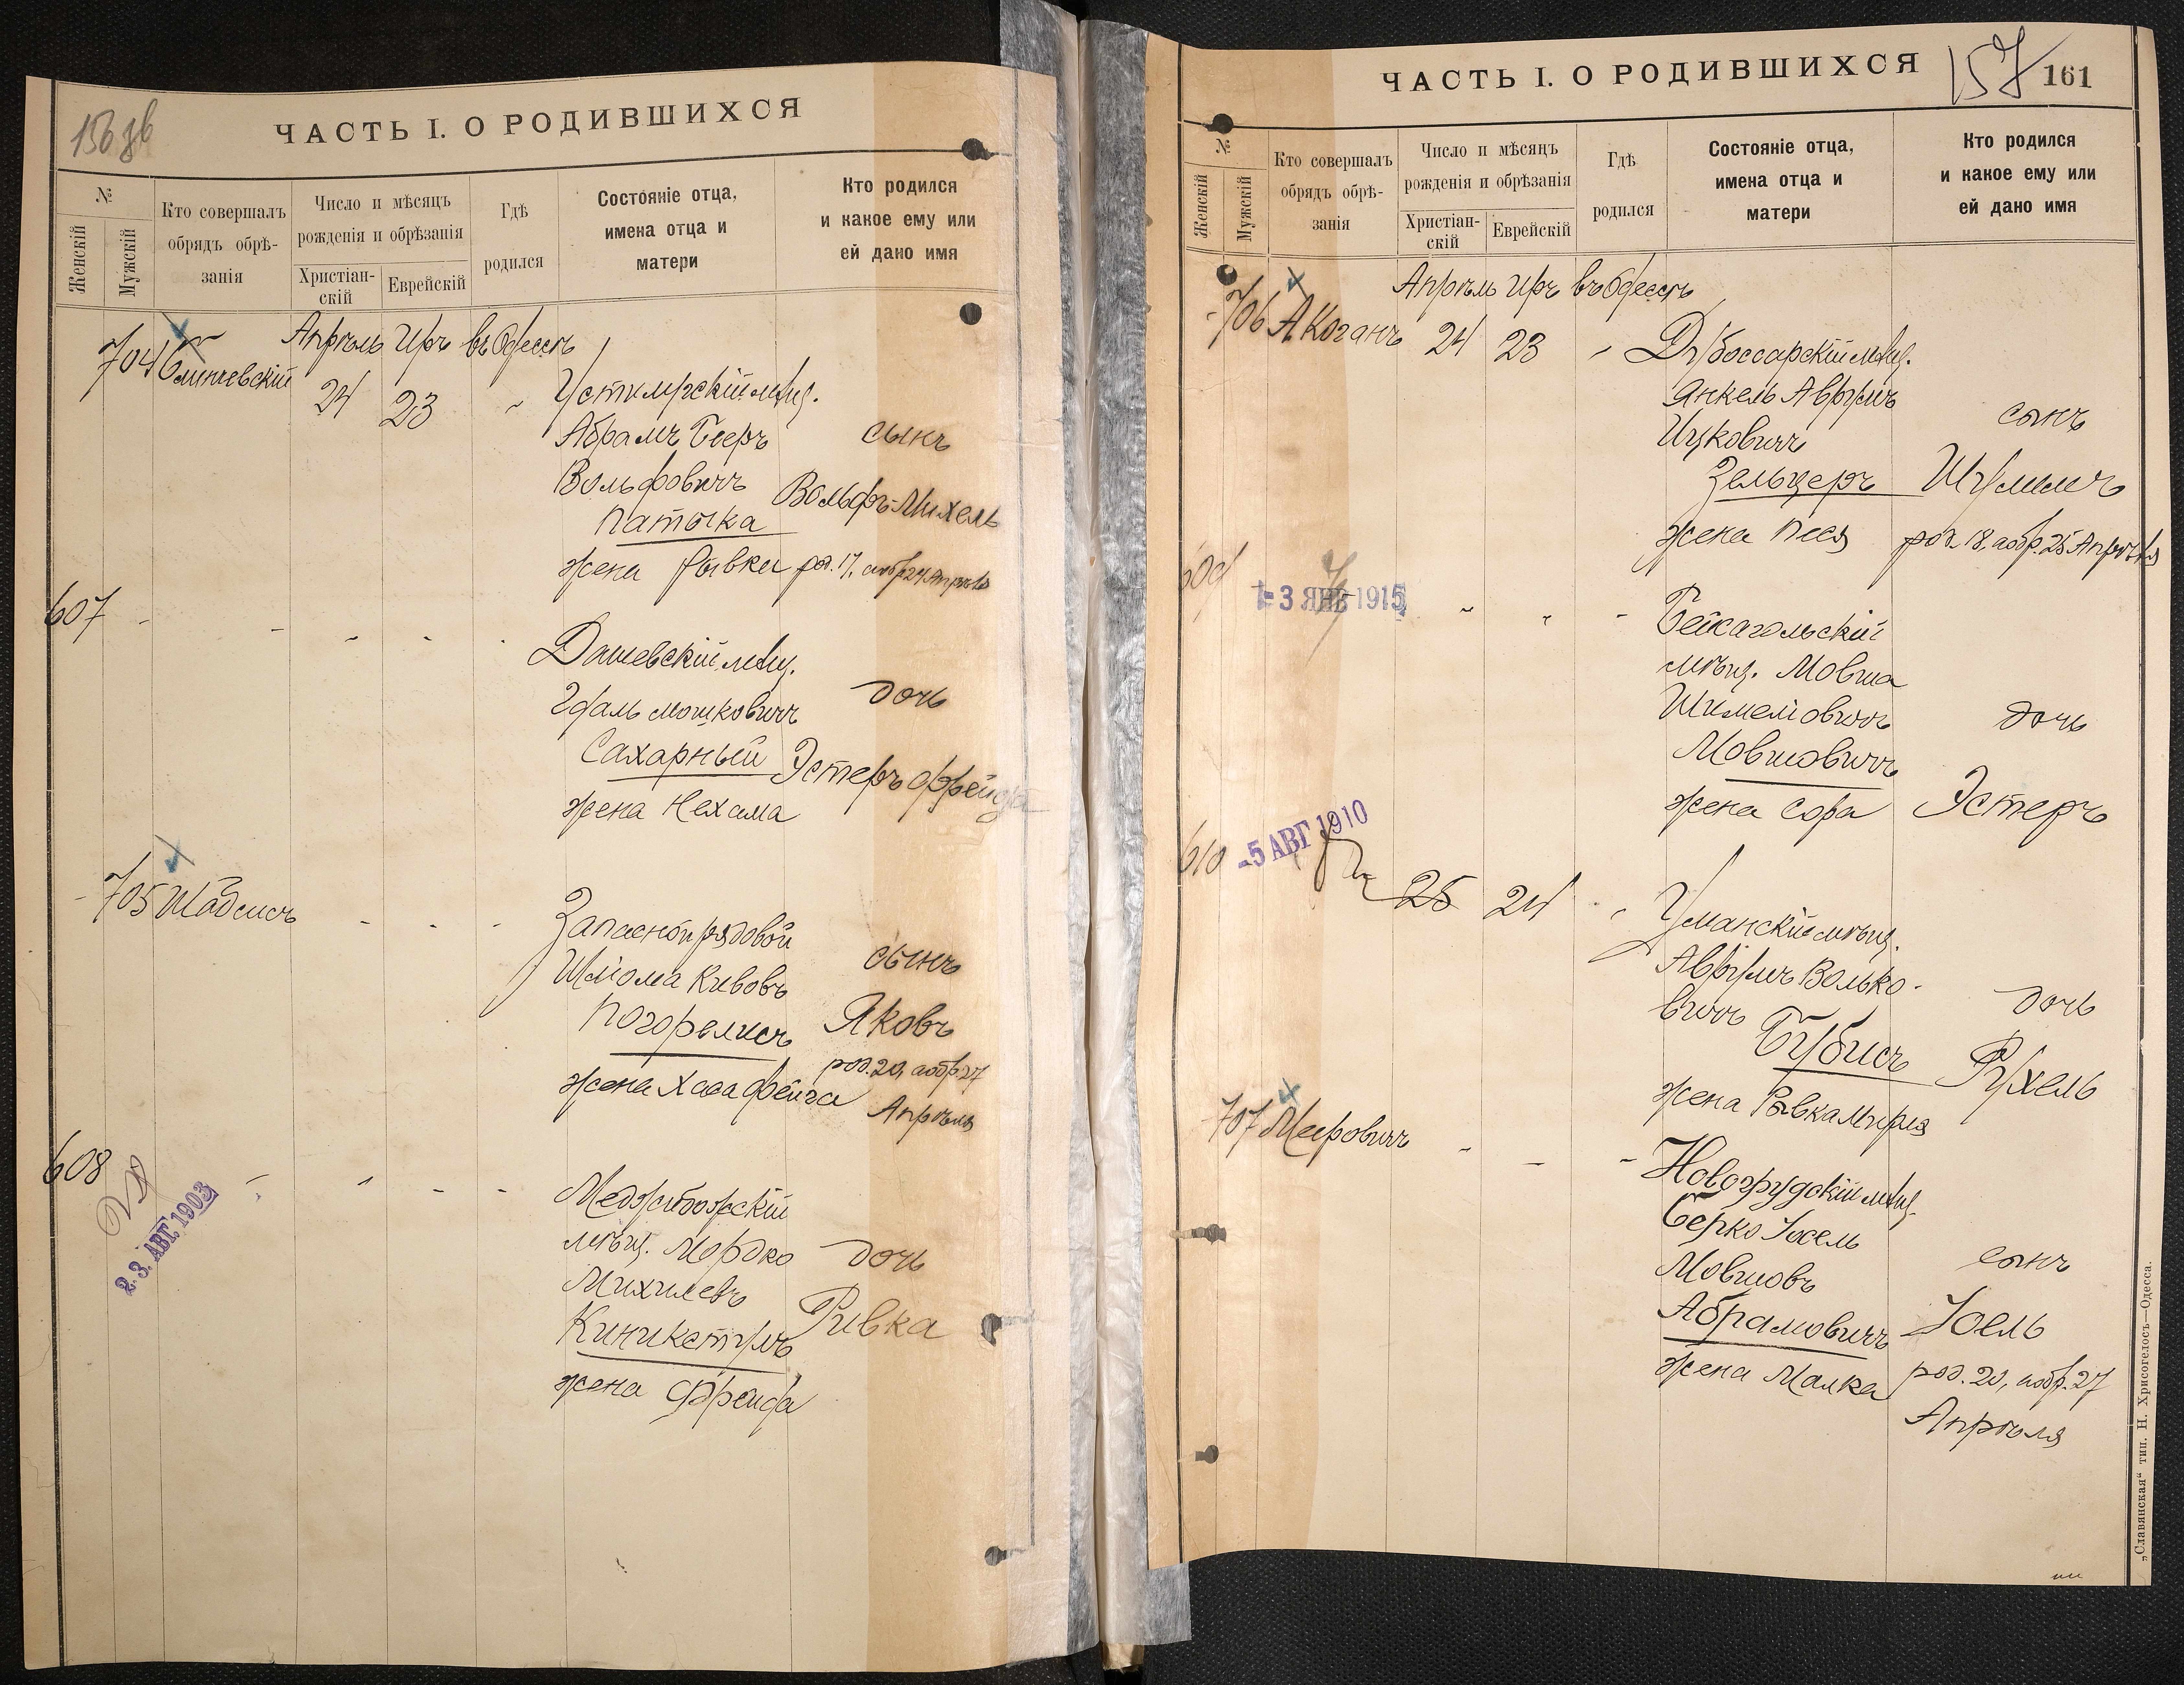 156 зв
ЧАСТЬ I. О РОДИВШИХСЯ
№
Женскій
Мужскій
Кто совершалъ
обрядъ обрѣ-
занія
Число и мѣсяцъ
рожденія и обрѣзанія
Христіан-
скій
Еврейскій
Гдѣ
родился
Состояніе отца,
имена отца и
матери
Кто родился
и какое ему или
ей дано имя
Апрѣль Иръ въ Одессѣ
704
24 23 "
мѣщ.
Абрамъ Бееръ
Вольфовичъ
Патыка
жена Рывка
сынъ
Вольфъ-Михель
род. 17, а обр. 24 Апрѣля
607 - - - -
Дашевскій мѣщ.
Эфаль Мошковичъ
Сахарный
жена Нехама
дочь
Эстеръ Фрейда
705 Шадсисъ - - -
Запасной рядовой
Шлома Кивовъ
Погорѣлисъ
жена Хая Фейга
сынъ
Яковъ
род. 20, а обр. 27
Апрѣля
608 - - - -
2.3. АВГ. 1903
Меджибожскій
мѣщ. Мордко
Михилевъ
жена Фрейда
дочь
Ривка
ЧАСТЬ I. О РОДИВШИХСЯ
157 161
№
Женскій
Мужскій
Кто совершалъ
обрядъ обрѣ-
занія
Число и мѣсяцъ
рожденія и обрѣзанія
Христіан-
скій
Еврейскій
Гдѣ
родился
Состояніе отца,
имена отца и
матери
Кто родился
и какое ему или
ей дано имя
Апрѣль Иръ въ Одессѣ
706 А Коганъ 24 23 "
Дубоссарскій мѣщ.
Янкель Аврумъ
Ицковичъ
Зельцеръ
жена Песя
сынъ
Шулимъ
род. 18, а обр. 25 Апрѣля
609 - - -
- 3 ЯНВ 1915
мѣщ. Мовша
Шимеліовичъ
Мовшовичъ
жена Сора
дочь
Эстеръ
610
-5 АВГ 1910
25 24 "
Уманскій мѣщ.
Аврумъ Волько-
вичъ
Бубисъ
жена Рывка Мирля
дочь
Рухель
707 Меровичъ - - -
Новогрудскій мѣщ.
Берко Іосель
Мовшовъ
Абрамовичъ
жена Малка
сынъ
Іоель
род. 20, а обр. 27
Апрѣля
„Славянская“ тип. Н. Хрисогелосъ—Одесса.